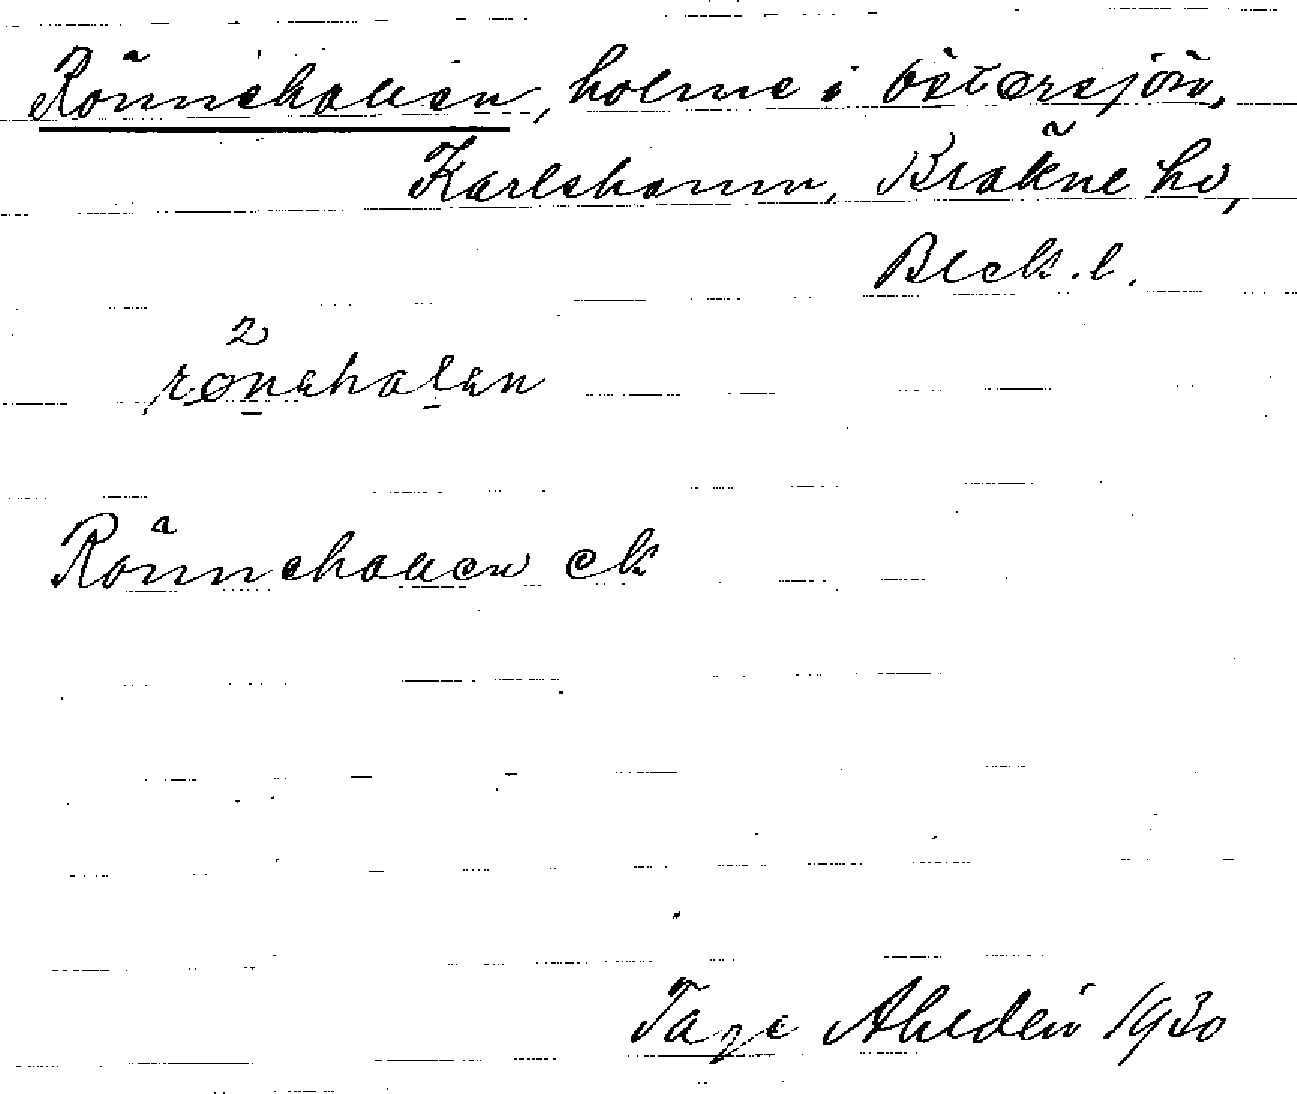 Rönnehallen, holme i Östersjön,
Karlshamn, Bräkne hd,
Blek. l.
2
rönehalen
Rönnehallen ek
Tage Ahldén 1930